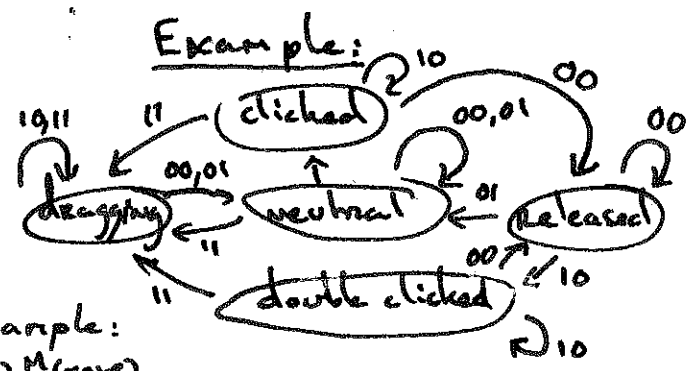 Example:
10
00
clicked
10,11
11
00,01
00
00,01
dragging
neutral
01
Released
11
00
10
11
double clicked
10
ample:
M(move)